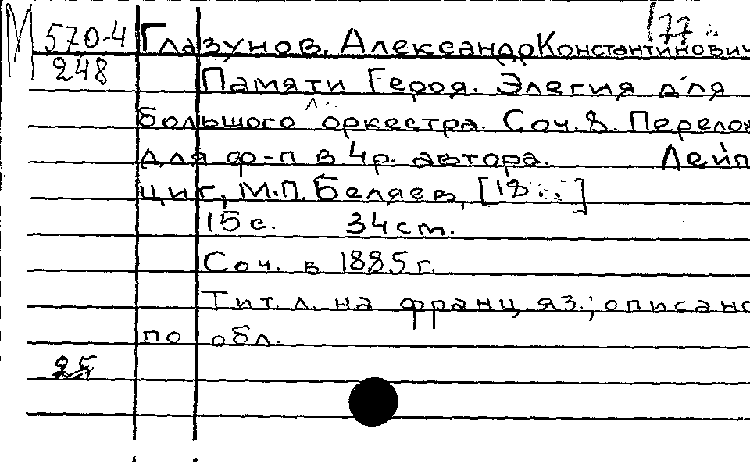 177
М 570-4 Глазунов, Александр Константинович
248 Памяти Героя. Элегия для
большого оркестра. Соч. 8. Перелож
для ф-п в 4 р. автора. Лейп
циг, М.П. Беляев, [18..]
15 с. 34 см.
Соч. в 1885 г.
Тит. л. на франц. яз.; описано
по обл.
25